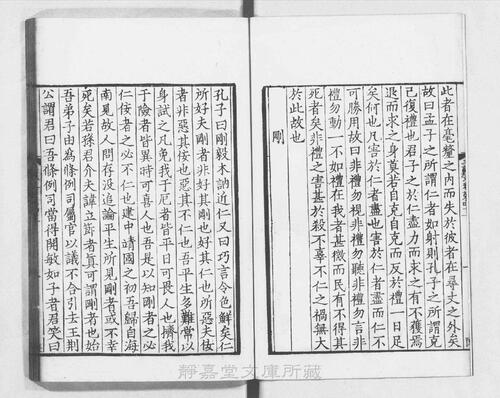 此者在毫釐之內而失於彼者在尋丈之外矣
故曰孟子之所謂仁者如射則孔子之所謂克
己復禮也君子之於仁盡力而求之有不獲焉
退而求之身莫若自克自克而反於禮一日足
矣何也凡害於仁者盡也害於仁者盡而仁不
可勝用故曰非禮勿視非禮勿聽非禮勿言非
禮勿動一不如禮在我者甚微而民有不得其
死者矣非禮之害甚於殺不辜不仁之禍無大
於此故也
剛
孔子曰剛毅木訥近仁又曰巧言令色鮮矣仁
所好夫剛者非好其剛也好其仁也所惡夫佞
者非惡其佞也惡其不仁也吾平生多難常以
身試之凡免我于厄者皆平日可畏人也擠我
于險者皆異時可喜人也吾是以知剛者之必
仁佞者之必不仁也建中靖國之初吾歸自海
南見故人問存没追論平生所見剛者或不幸
死矣若孫君介夫諱立節者真可謂剛者也始
吾弟子由為條例司屬官以議不合引去王荊
公謂君曰吾條例司當得開敏如子者君笑曰
靜嘉堂文庫所藏